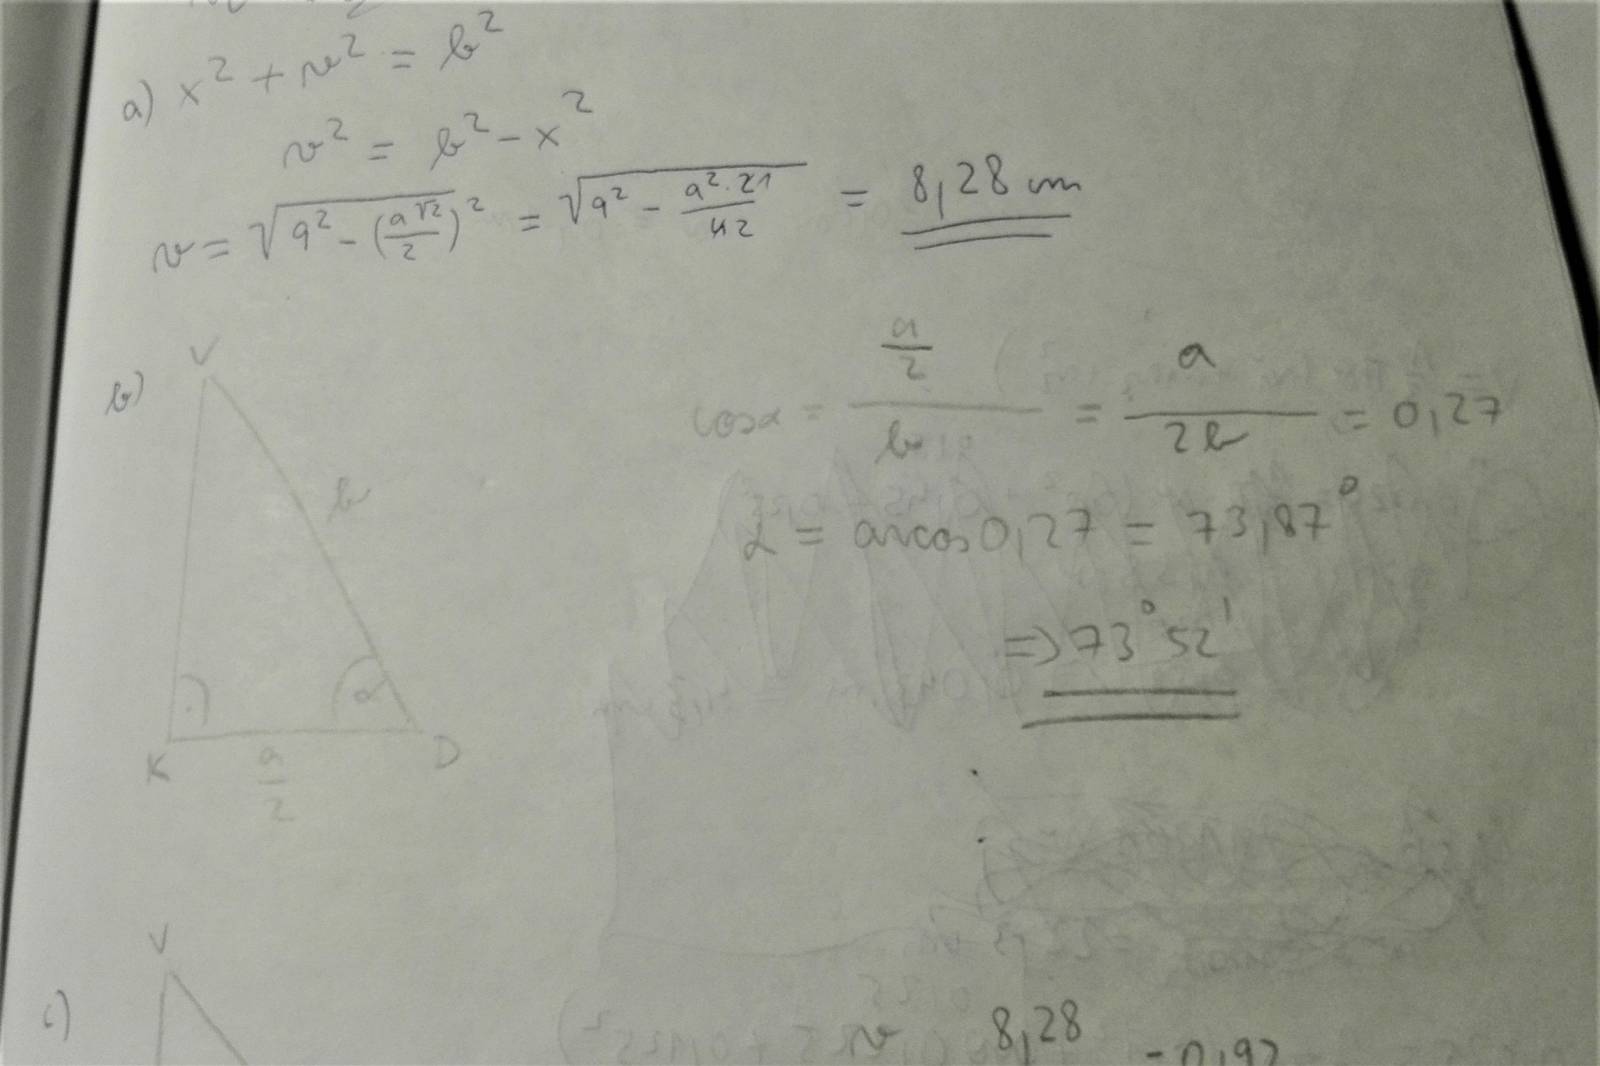 a) x² + v² = b²
v² = b² - x²
v = √a² - (a√2/2)² = √a² - a²·21/42 = 8,28 cm
b) V
cosα = a/2 / b = a / 2b = 0,27
b
α = arcos 0,27 = 73,87°
=> 73° 52'
α
K a/2 D
V
c)
v 8,28 = 0,92